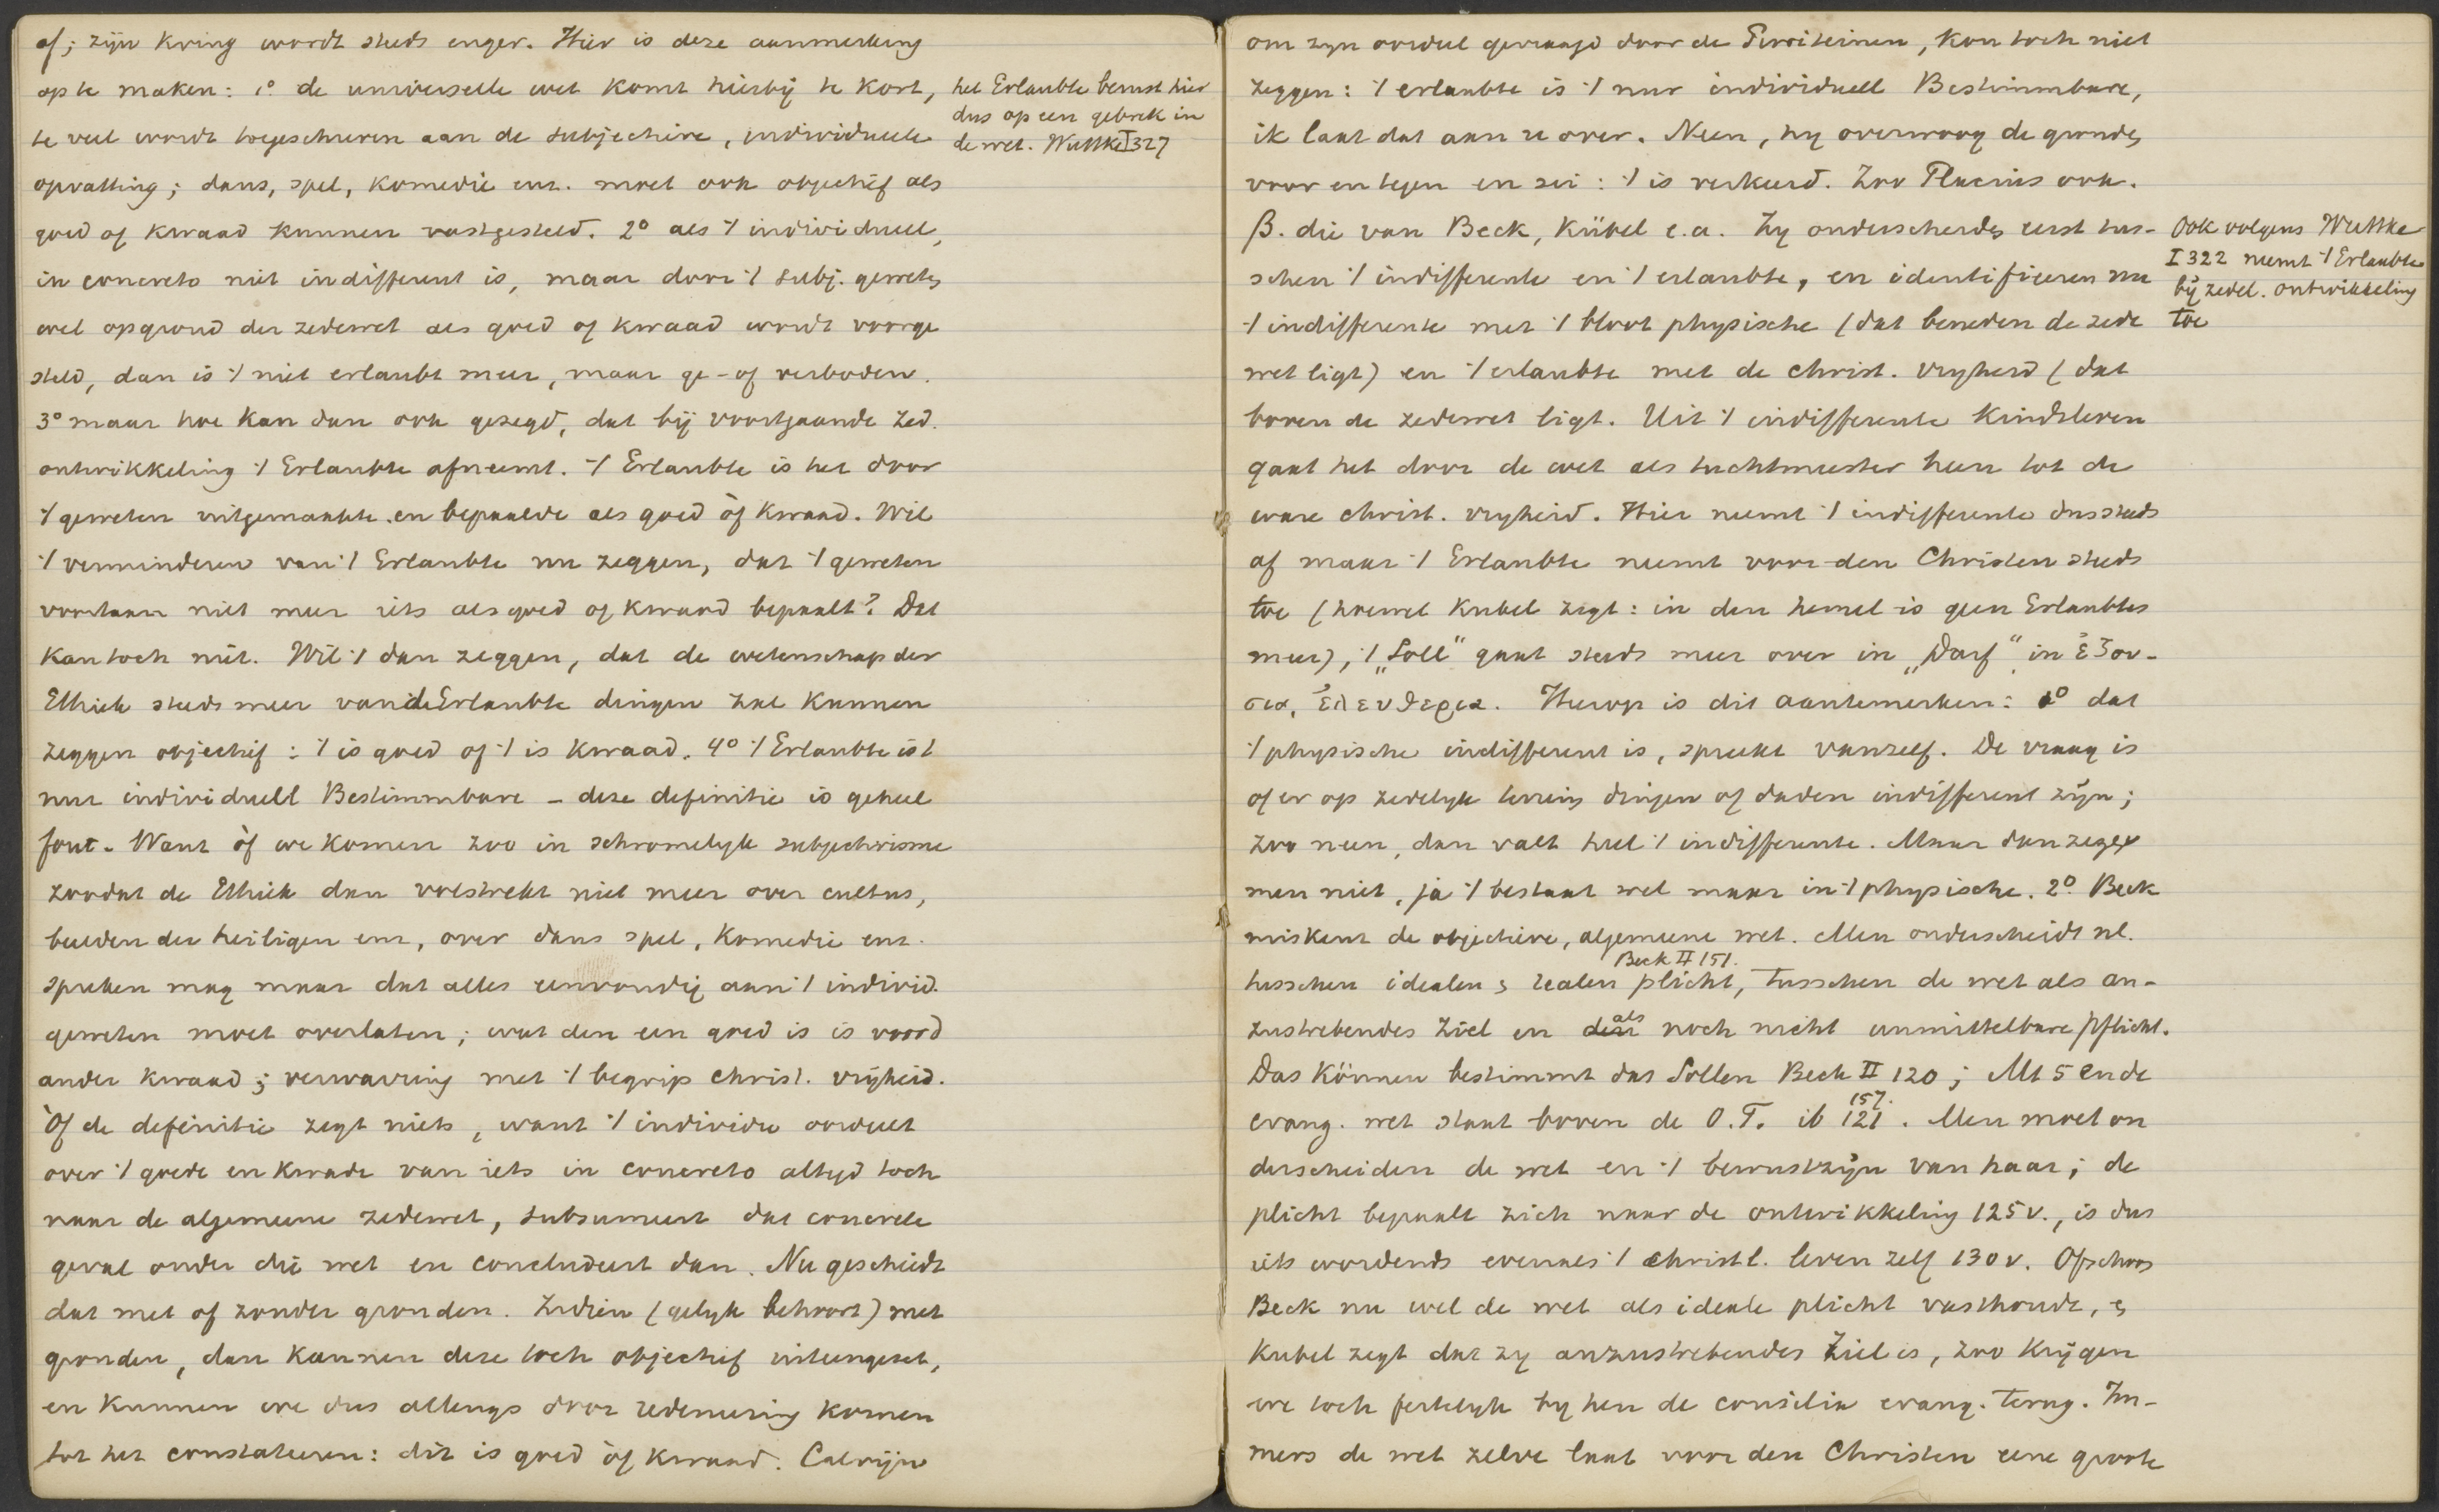 af; zijn kring wordt steeds enger. Hier is deze aanmerking
op te maken: 1° de universeele wet komt hierbij te kort,
te veel wordt toegeschreven aan de subjectieve, individueele
opvatting; dans, spel, komedie enz. moet ook objectief als
goed of kwaad kunnen vastgesteld. 2° als 't individueel,
in concreto niet indifferent is, maar door 't subj. geweten
wel op grond der zedewet als goed of kwaad wordt voorge
steld, dan is 't niet erlaubt meer, maar ge- of verboden.
3° maar hoe kan dan ook gezegd, dat bij voortgaande zed.
ontwikkeling 't Erlaubte afneemt. 't Erlaubte is het door
't geweten uitgemaakte en bepaalde als goed òf kwaad. Wil
't verminderen van 't Erlaubte nu zeggen, dat 't geweten
voortaan niet meer iets als goed of kwaad bepaalt? Dat
kan toch niet. Wil 't dan zeggen, dat de wetenschap der
Ethiek steeds meer van de Erlaubte dingen zal kunnen
zeggen objectief: 't is goed of 't is kwaad. 4° 't Erlaubte is 't
nur individuell Bestimmbare - deze definitie is geheel
fout. Want òf we komen zoo in schromelyk subjectivisme
zoodat de Ethiek dan volstrekt niet meer over cultus,
beelden der heiligen enz, over dans spel, komedie enz.
spreken mag maar dat alles eenvoudig aan 't individ.
geweten moet overlaten; wat den een goed is is voor d
ander kwaad; verwarring met 't begrip christ. vrijheid.
Òf de definitie zegt niets, want 't individu oordeelt
over 't goede en kwade van iets in concreto altyd toch
naar de algemeene zedewet, subsumeert dat concrete
geval onder die wet en concludeert dan. Nu geschiedt
dat met of zonder gronden. Indien (gelyk behoort) met
gronden, dan kunnen deze toch objectief uiteengezet,
en kunnen we dus allengs door redeneering komen
tot het constateeren: dit is goed òf kwaad. Calvijn
het Erlaubte berust hier
dus op een gebrek in
de wet. Wuttke I 327
om zyn oordeel gevraagd door de, kon toch niet
zeggen: 't erlaubte is 't nur individuell Bestimmbare,
ik laat dat aan u over. Neen, hy overwoog de gronden
voor en tegen en zei: 't is verkeerd. Zoo Placeus ook.
β. die van Beck, Kübel e.a. Zy onderscheiden eerst tus-
schen 't indifferente en 't erlaubte, en identificeren nu
't indifferente met 't bloot physische (dat beneden de zede
wet ligt) en 't erlaubte met de christ. vryheid (dat
boven de zedewet ligt. Uit 't indifferente kindsleven
gaat het door de wet als tuchtmeester heen tot de
ware christ. vryheid. Hier neemt 't indifferente dus steeds
af maar 't Erlaubte neemt voor den Christen steeds
toe (hoewel Kubel zegt: in den hemel is geen Erlaubtes
meer), 't "Soll" gaat steeds meer over in "Darf" in ἐξου-
σια, ἐλευθερια. Hierop is dit aantemerken: 1° dat
't physische indifferent is, spreekt vanzelf. De vraag is
of er op zedelyk terrein dingen of daden indifferent zijn;
zoo neen, dan valt heel 't indifferente. Maar dan zegge
men niet, ja 't bestaat wel maar in 't physische. 2° Beck
miskent de objectieve, algemeene wet. Men onderscheidt nl.
Beck II 151.
tusschen idealen & realen plicht, tusschen de wet als an-
zustrebendes Ziel en als noch nicht unmittelbare Pflicht.
Das Können bestimmt das Sollen Beck II 120; Mt 5 en de
evang. wet staat boven de O.T. ib 121. 157. Men moet on
derscheiden de wet en 't bewustzijn van haar; de
plicht bepaalt zich naar de ontwikkeling 125 v., is dus
iets wordends evenals 't christl. leven zelf 130 v. Ofschoon
Beck nu wel de wet als ideale plicht vasthoudt, en
Kubel zegt dat zy anzustrebendes Ziel is, zoo krijgen
we toch feitelyk by hen de consilia evang. terug. Im-
mers de wet zelve laat voor den Christen eene groote
Ook volgens Wuttke
I 322 neemt 't Erlaubte
bij zedel. ontwikkeling
toe